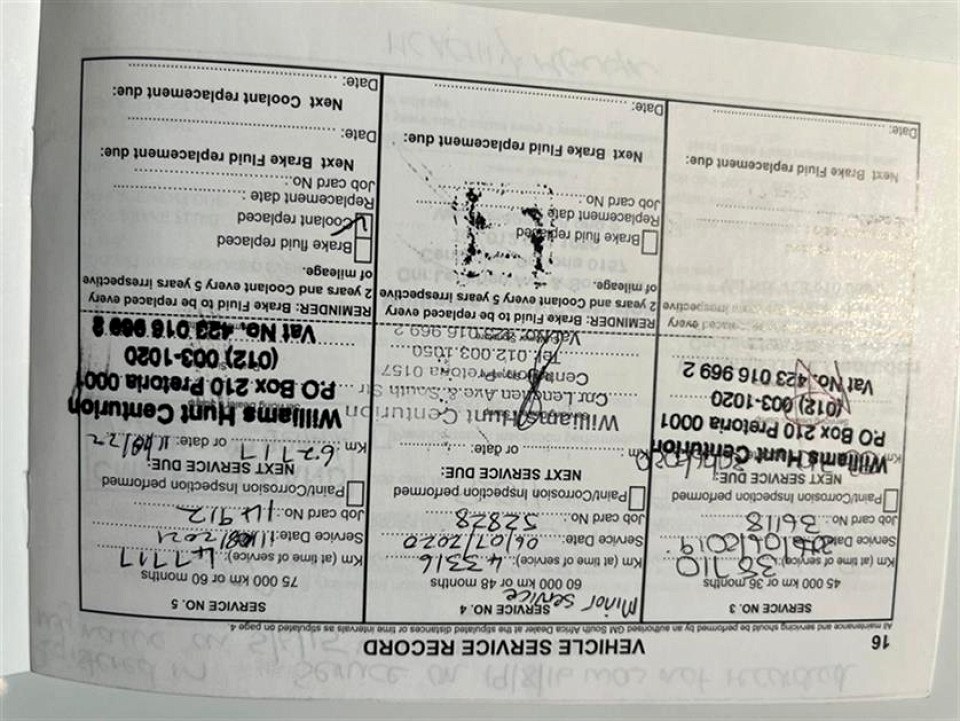 16
VEHICLE SERVICE RECORD
All maintenance and servicing should be performed by an authorised GM South Africa Dealer at the stipulated distances or time intervals as stipulated on page 4
SERVICE NO. 3
45 000 km or 36 months
Km (at time of service): 38710
Service Date:
Job card No.: 36118
Paint/Corrosion Inspection performed
NEXT SERVICE DUE:
Williams Hunt Centurion
P.O Box 210 Pretoria 0001
(012) 003-1020
Vat No. 423 016 969 2
Next Brake Fluid replacement due:
Date:
SERVICE NO. 4
Minor service
60 000 km or 48 months
Km (at time of service): 43316
Service Date: 06/07/2020
Job card No.: 52828
Paint/Corrosion Inspection performed
NEXT SERVICE DUE:
Km: or date:
Williams Hunt Centurion
Cnr Lenchen Ave & South Str
Centurion Pretoria 0157
Tel: 012 003 1050
Vat No: 423 016 969 2
REMINDER: Brake Fluid to be replaced every
2 years and Coolant every 5 years irrespective
of mileage.
Brake fluid replaced
Replacement date
Job card No.:
Next Brake Fluid replacement due:
Date:
SERVICE NO. 5
75 000 km or 60 months
Km (at time of service): 47717
Service Date: 11/08/2021
Job card No.: 14912
Paint/Corrosion Inspection performed
NEXT SERVICE DUE:
Km: 62717 or date: 11/08/22
Williams Hunt Centurion
P.O Box 210 Pretoria 0001
(012) 003-1020
Vat No. 423 016 969 2
REMINDER: Brake Fluid to be replaced every
2 years and Coolant every 5 years irrespective
of mileage.
Brake fluid replaced
Coolant replaced
Replacement date :
Job card No.:
Next Brake Fluid replacement due:
Date:
Next Coolant replacement due:
Date: